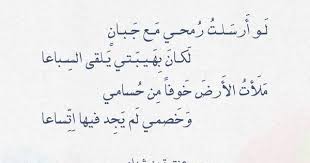 لَو أَرسَلتُ رُمحي مَع جَبانٍ
لَكانَ بِهَيبَتي يَلقى السِباعا
مَلَأتُ الأَرضَ خَوفاً مِن حُسامي
وَخَصمي لَم يَجِد فيها اِتِّساعا